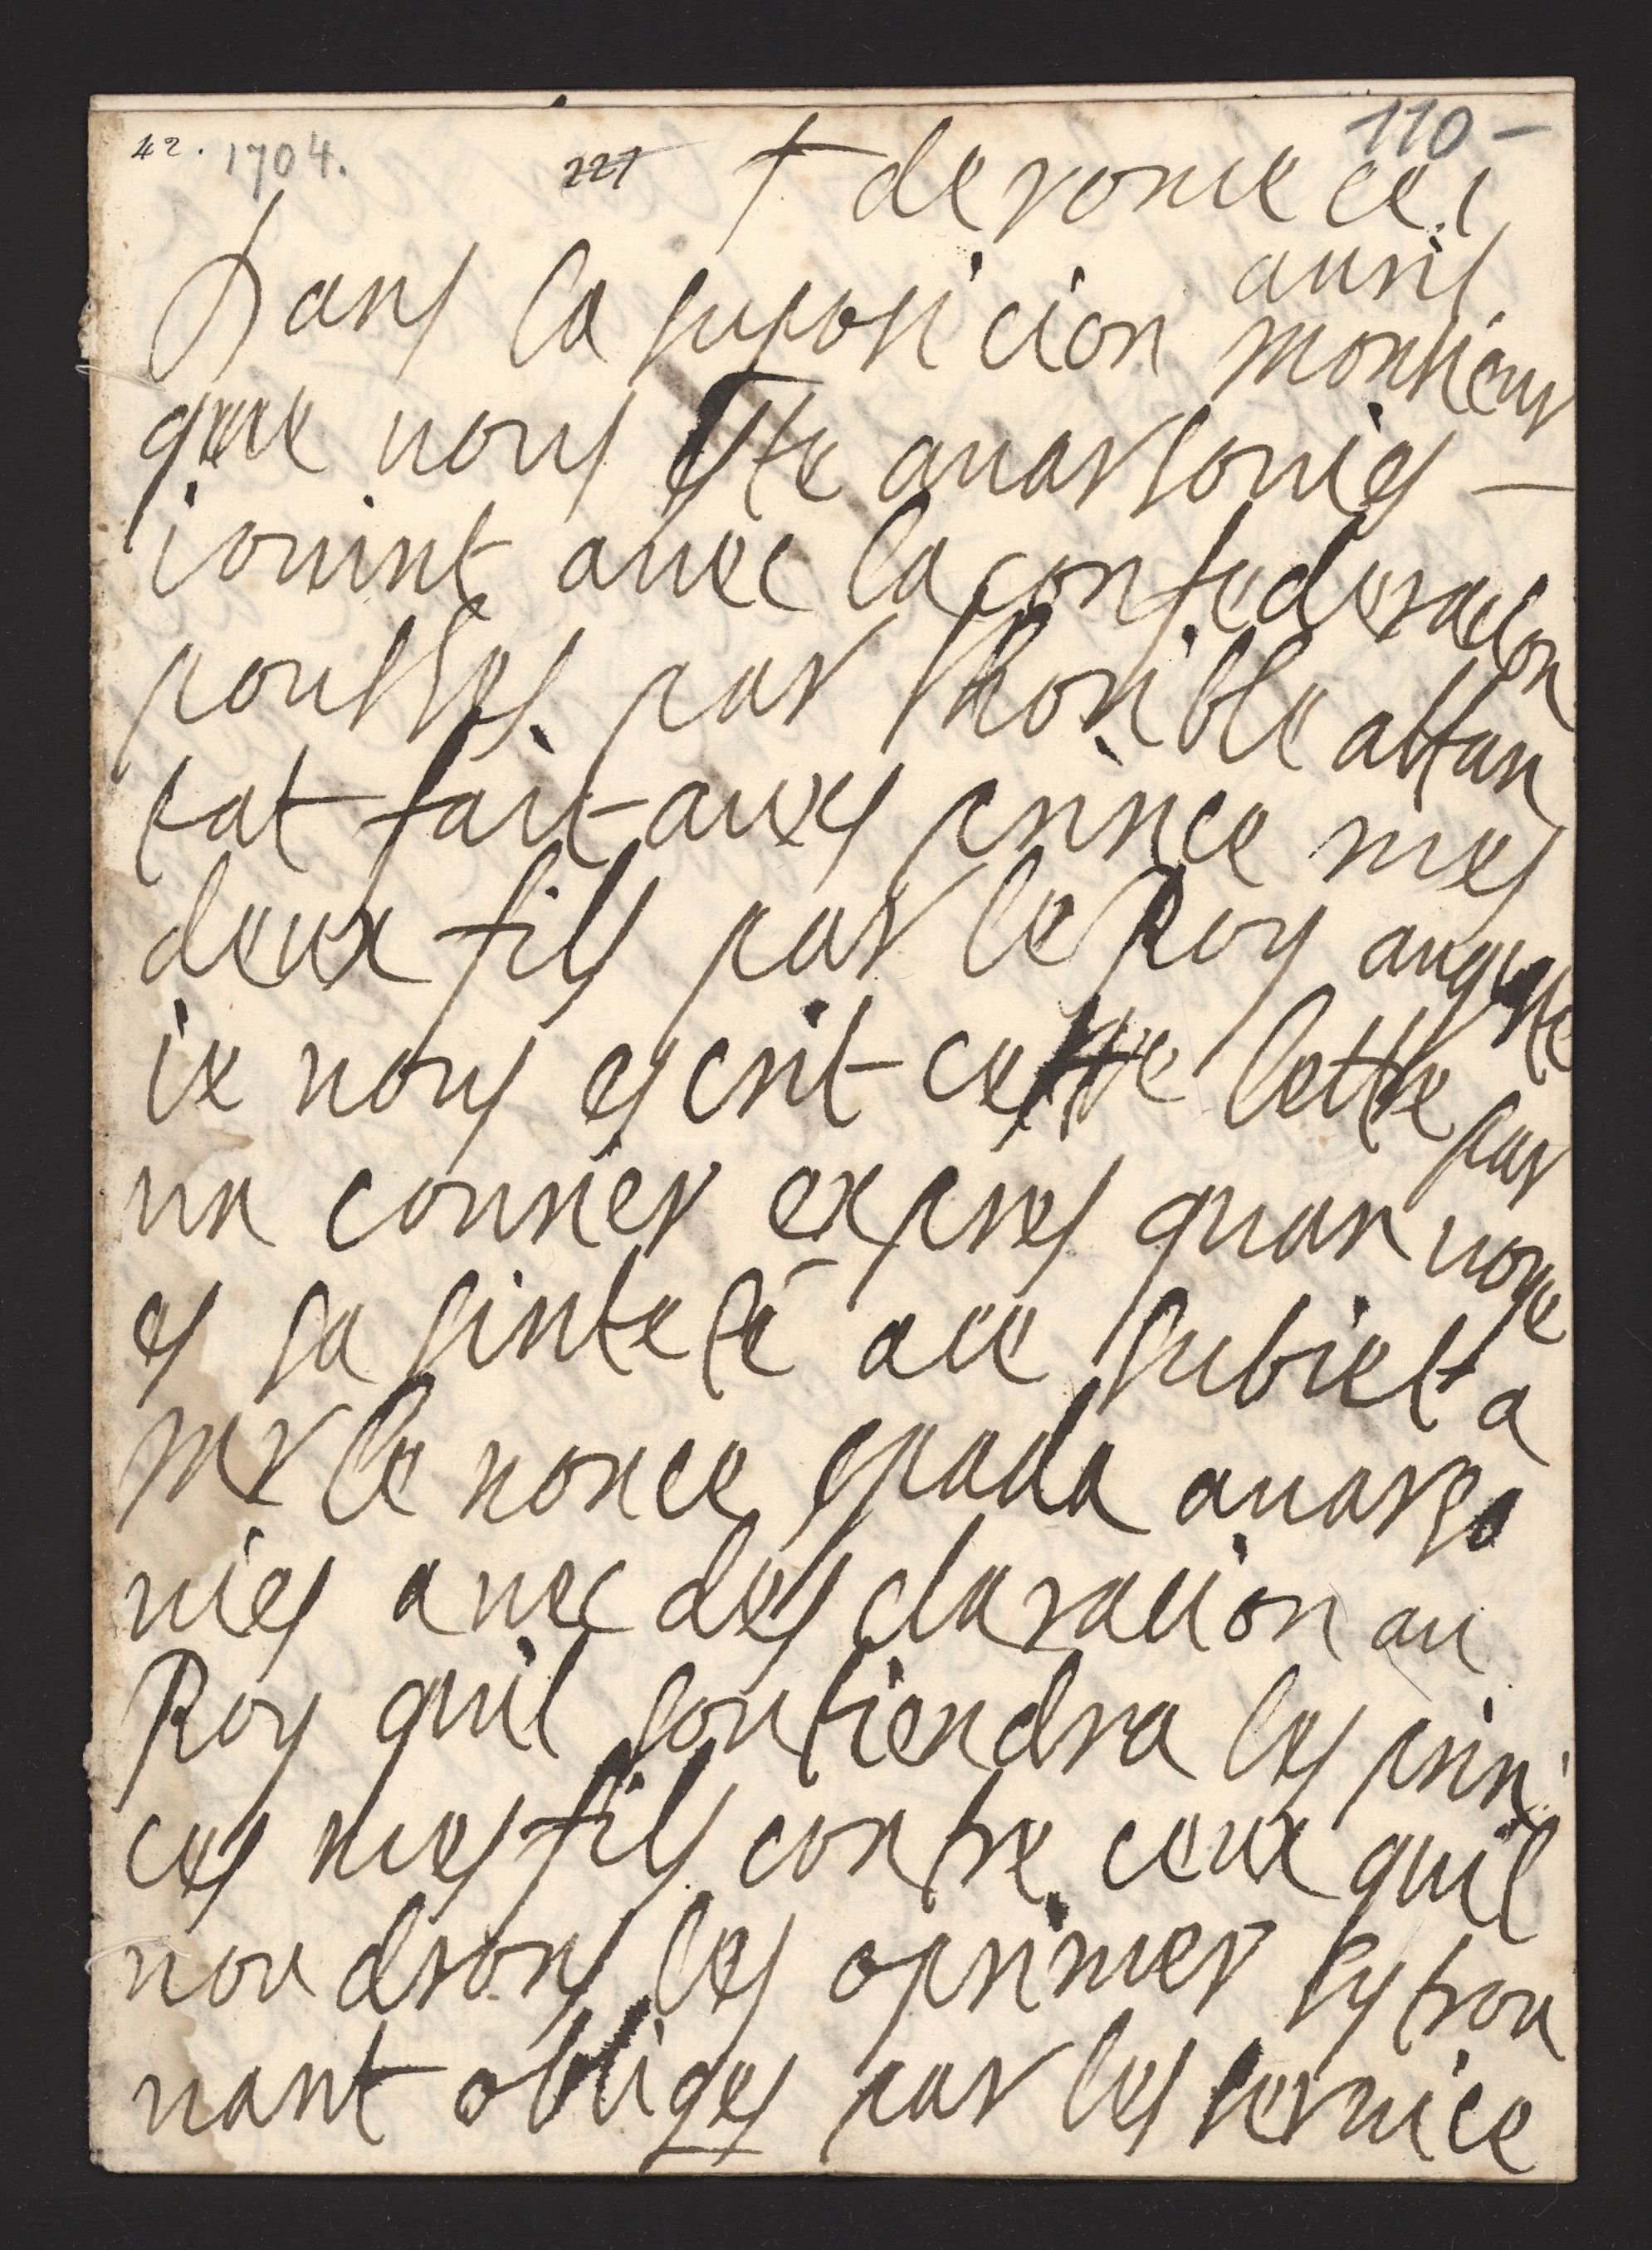 42. 1704. 221 † de rome ce i 110 -
auril
Dans la suposicion monsieur
que vous este auarsouies —
iouint avec la confederacion
pousses par lhorible attan
tat fait aux prince mes
deux fils par le Roy auguste
ie vous escrit cette lettre par
un courier expres quan uoye
es sa sintete a ce subiett a
Mr le nonce spada auarso
uies avec des claracion au
Roy quil soutiendra les prin
ces mes fils contre ceux quil
vou drons les oprimer sy trou
uant obliges par les seruice